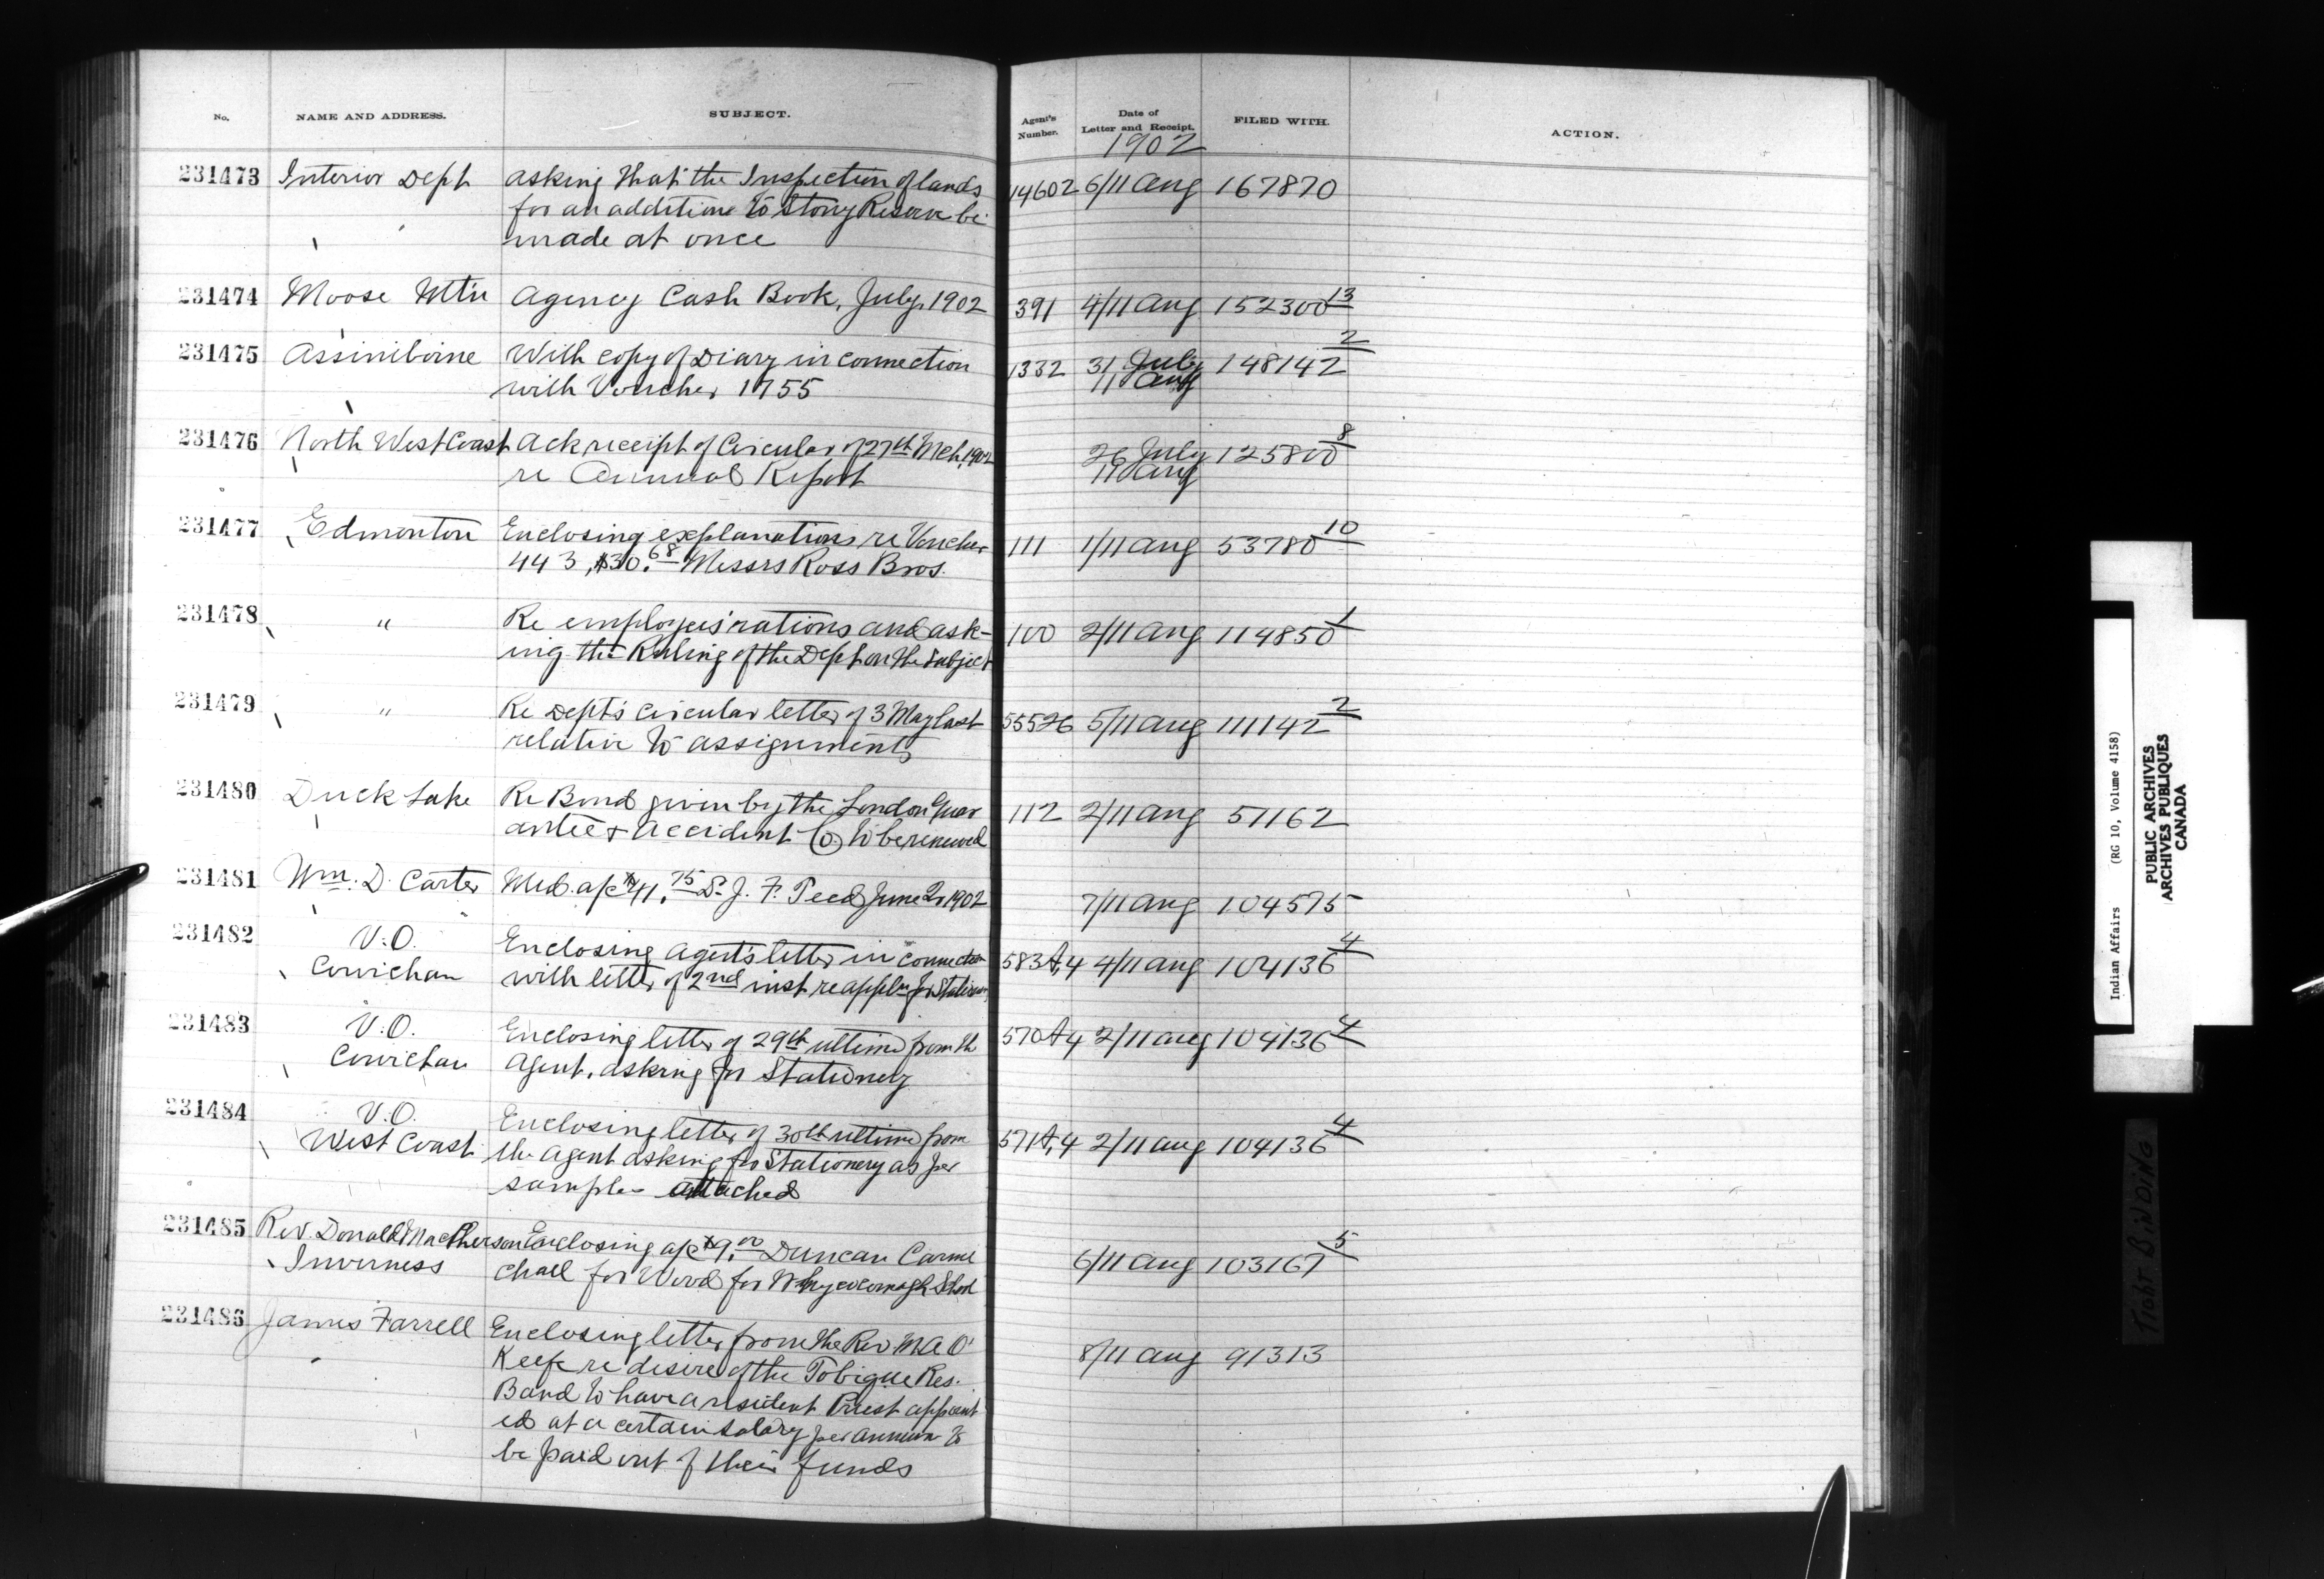 No. NAME AND ADDRESS. SUBJECT. Agent's Number. Date of Letter and Receipt. FILED WITH. ACTION.
1902
231473 Interior Dept asking that the Inspection of lands 14602 6/11 Aug 167870
for an addition to Stony Reserve be
made at once
231474 Moose Mtn Agency Cash Book, July, 1902 391 4/11 Aug 152300 13
231475 Assiniboine With copy of Diary in connection 1332 31 July 148142 2
with Voucher 1755 11 Aug
231476 North West Coast Ack receipt of Circular of 27th Mch, 1902 26 July 125800 8
re Annual Report 11 Aug
231477 Edmonton Enclosing explanations re Voucher 111 1/11 Aug 53780 10
443, $30.68 Messrs Ross Bros.
231478 " Re employees' rations and ask- 100 2/11 Aug 114850 1
ing the Ruling of the Dept on the subject
231479 " Re Dept's circular letter of 3 May last 55526 5/11 Aug 111142 2
relative to assignments
231480 Duck Lake Re Bond given by the London Guar 112 2/11 Aug 51162
antee & Accident Co. to be renewed
231481 Wm. D. Carter Med. a/c $41.75 J. F. Teed June 1902 7/11 Aug 104575
231482 V.O. Enclosing Agent's letter in connection 583A,4 4/11 Aug 104136 4
Cowichan with letter of 2nd inst re appln for Stationery
231483 V.O. Enclosing letter of 29th ultimo from th 570A4 2/11 Aug 104136 4
Cowichan Agent, asking for Stationery
231484 V.O. Enclosing letter of 30th ultimo from 571A,4 2/11 Aug 104136 4
West Coast the Agent asking for Stationery as per
samples attached
231485 Rev. Donald MacPherson Enclosing a/c $9.00 Duncan Carmi 6/11 Aug 103167 5
Inverness chael for Wood for Whycocomagh School
231486 James Farrell Enclosing letter from the Rev. M A O' 8/11 Aug 91313
Keefe re desire of the Tobique Res.
Band to have a resident Priest appoint
ed at a certain salary per annum to
be paid out of their funds
Indian Affairs (RG 10, Volume 4158)
PUBLIC ARCHIVES
ARCHIVES PUBLIQUES
CANADA
TIGHT BINDING